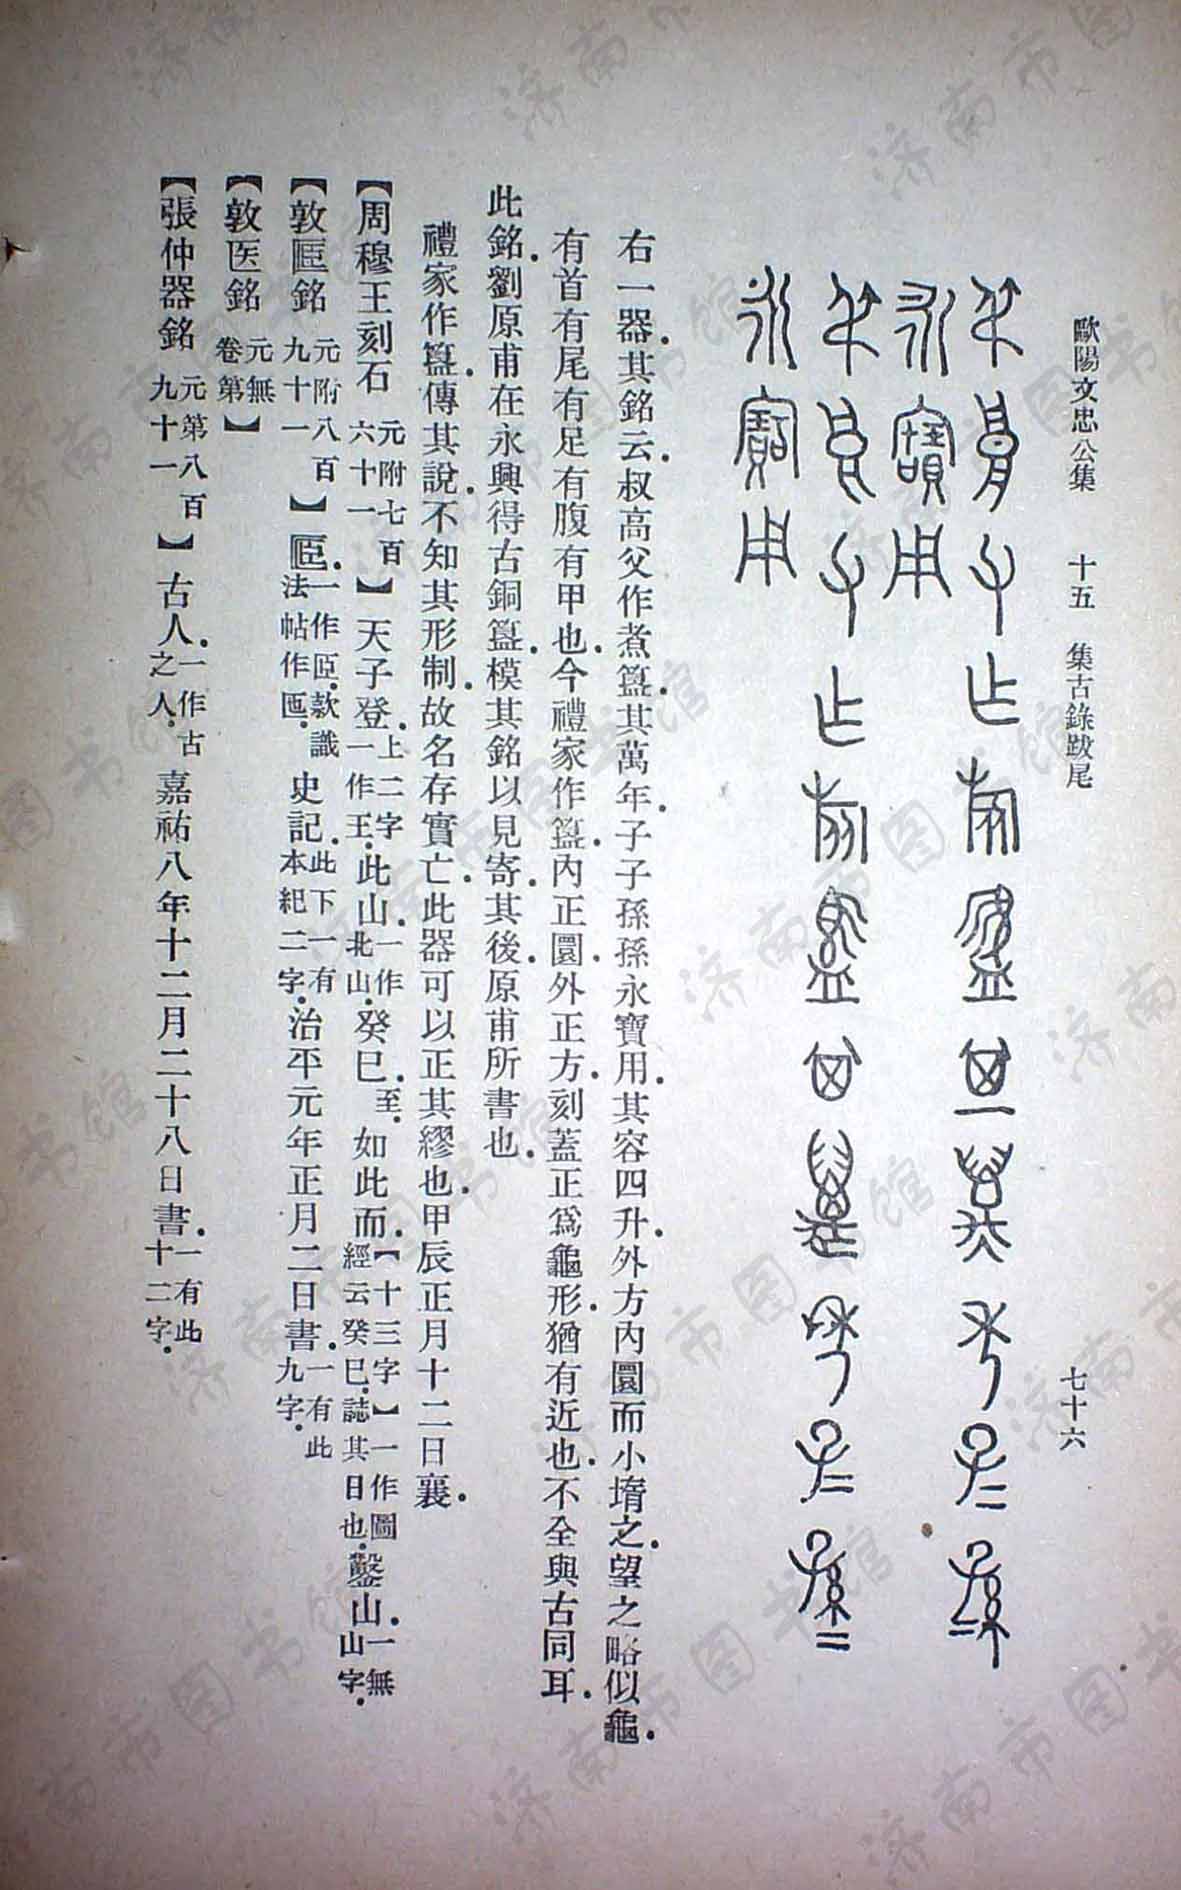 歐陽文忠公集　十五　集古錄跋尾　七十六
右一器．其銘云．叔高父作煮簋．其萬年．子子孫孫永寶用．其容四升外方內圜而小墮之．望之略似龜．
有首有尾有足有腹有甲也．今禮家作簋．內正圜．外正方．刻蓋正爲龜形．猶有近也．不全與古同耳．
此銘．劉原甫在永興得古銅簋．模其銘以見寄．其後．原甫所書也．
禮家作簋．傳其說．不知其形制．故名存實亡．此器可以正其繆也．甲辰正月十二日襄．
【周穆王刻石 元附七百六十一】天子登．上二字一作王．此山．一作北山．癸巳．至．如此而．【十三字】一作圖經云癸巳．誌其日也．鑿山．一無山字．
【敦匜銘 元附八百九十一】匜．一作𦣞．款識法帖作匜．史記．此下一有本紀二字．治平元年正月二日書．一有此九字．
【敦医銘 元無卷第】
【張仲器銘 元第八百九十一】古人．一作古之人．嘉祐八年十二月二十八日書．一有此十二字．